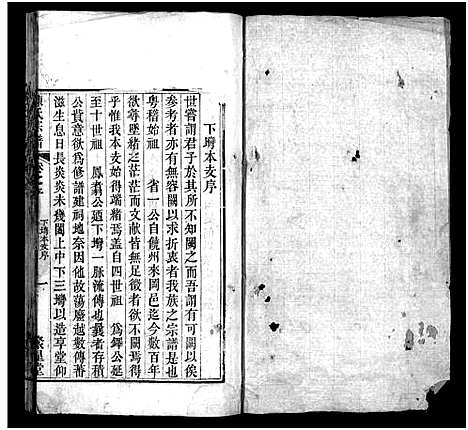 下塆本支序
世嘗謂君子於其所不知闕之而謂有可闕以俟
參考者亦有無容闕以求折衷者我族之宗譜是也
粵稽始祖 省一公自饒州來岡邑迄今數百年
欲尋墜緒之茫茫而文献皆無足徵欲不闕焉得
乎惟我本支始得端緒焉蓋自四世祖 為鐸公延
至十世祖 鳳翥公迺下塆一脉流傳也曩者存積
公貲意欲為修譜建祠地奈因他故蕩廢越數傳蕃
滋生息日長炎炎未幾闔上中下三塆以造享堂仰
氏宗譜
下塆本支序
一